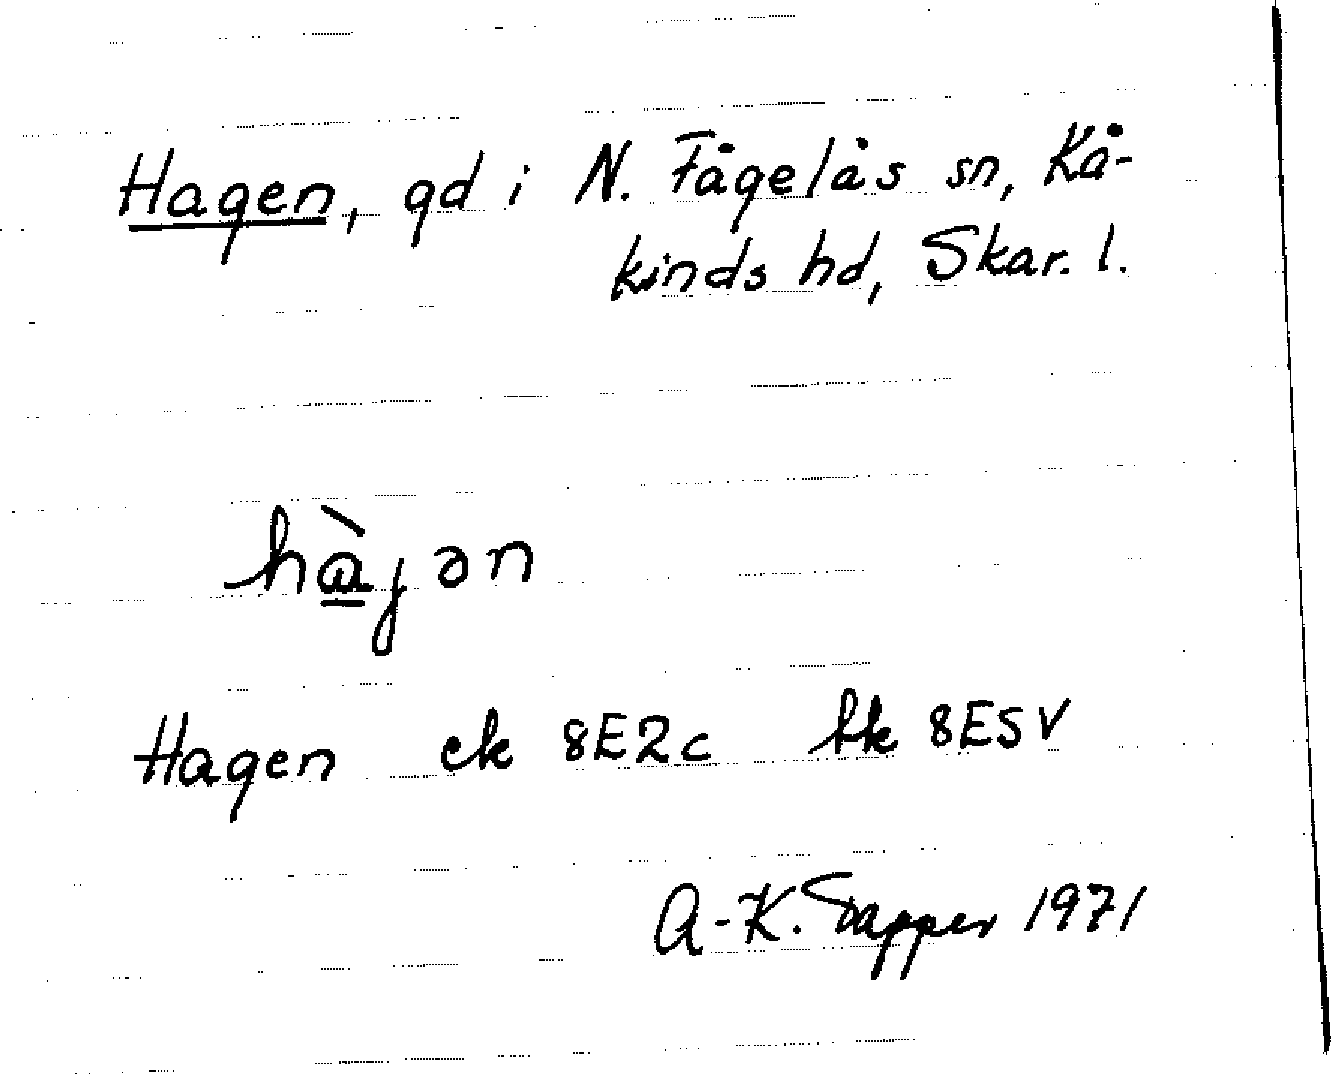 Hagen, gd i N. Fågelås sn, Kå-
kinds hd, Skar. l.
hàjən
Hagen ek 8E2c bk 8E5V
A-K. Sapper 1971